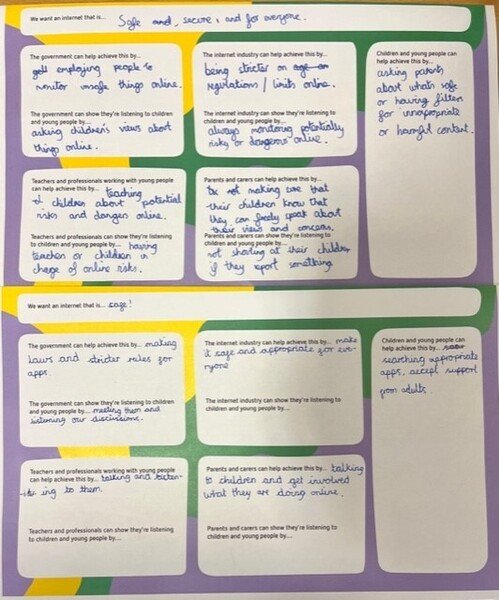 We want an internet that is... Safe and, secure, and for everyone.
The government can help achieve this by...
employing people to
monitor unsafe things online.
The government can show they're listening to children
and young people by....
asking children's views about
things online.
The internet industry can help achieve this by...
being stricter on
regulations / limits online.
The internet industry can show they're listening to
children and young people by....
always monitoring potentially
risky or dangerous online.
Children and young people can
help achieve this by...
asking parents
about whats safe
or having filters
for innapropriate
or harmful content.
Teachers and professionals working with young people
can help achieve this by... teaching
children about potential
risks and dangers online.
Teachers and professionals can show they're listening
to children and young people by.... having
teachers or children in
charge of online risks.
Parents and carers can help achieve this by...
making sure that
their children know that
they can freely speak about
their views and concerns.
Parents and carers can show they're listening to
children and young people by....
not shouting at their children
if they report something
We want an internet that is... safe!
The government can help achieve this by... making
laws and stricter rules for
apps.
The government can show they're listening to children
and young people by.... meeting them and
listening our discussions.
The internet industry can help achieve this by... make
it safe and appropriate for eve-
ryone
The internet industry can show they're listening to
children and young people by....
Children and young people can
help achieve this by...
searching appropriate
apps, accept support
from adults.
Teachers and professionals working with young people
can help achieve this by... talking and listen-
ing to them.
Teachers and professionals can show they're listening
to children and young people by....
Parents and carers can help achieve this by... talking
to children and get involved
what they are doing online.
Parents and carers can show they're listening to
children and young people by....